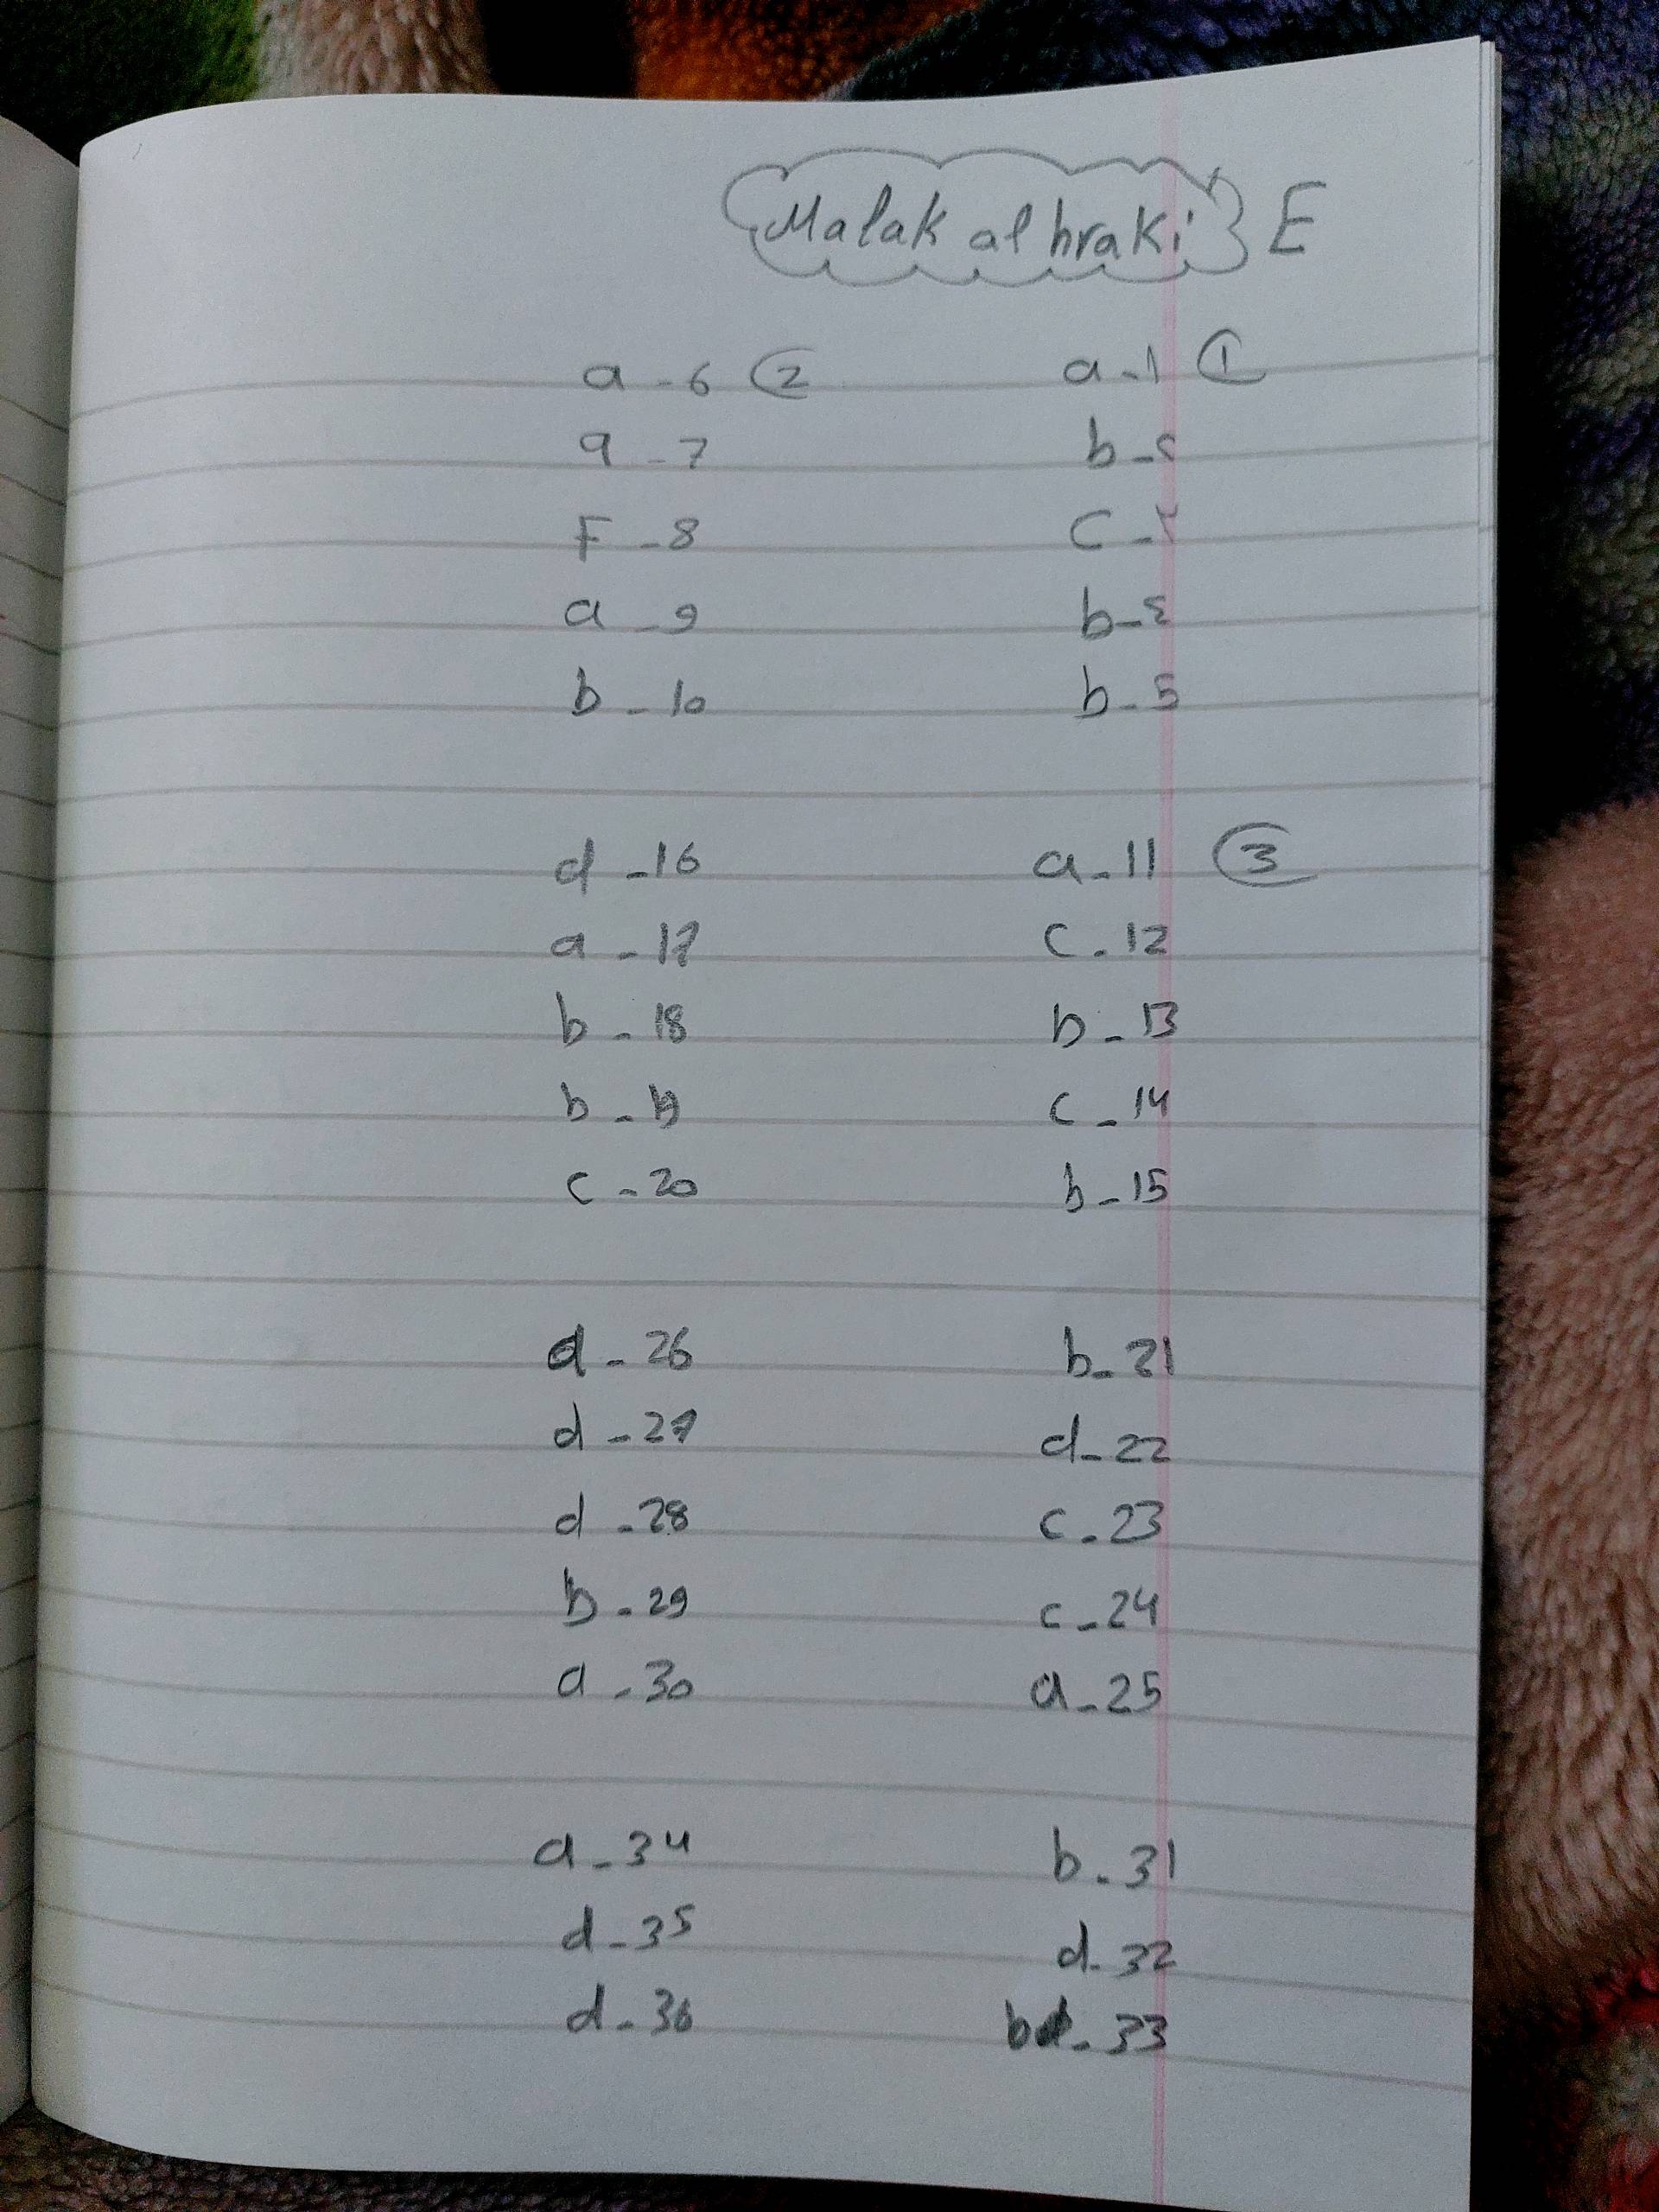 Malak al hraki E
a - 1 ① a - 6 ②
b - ٢ a - 7
C - ٣ F - 8
b - ٤ a - 9
b - 5 b - 10
③ a - 11 d - 16
c - 12 a - 17
b - 13 b - 18
c - 14 b - 19
b - 15 c - 20
b - 21 d - 26
d - 22 d - 27
c - 23 d - 28
c - 24 b - 29
a - 25 a - 30
b - 31 a - 34
d - 32 d - 35
b - 33 d - 36